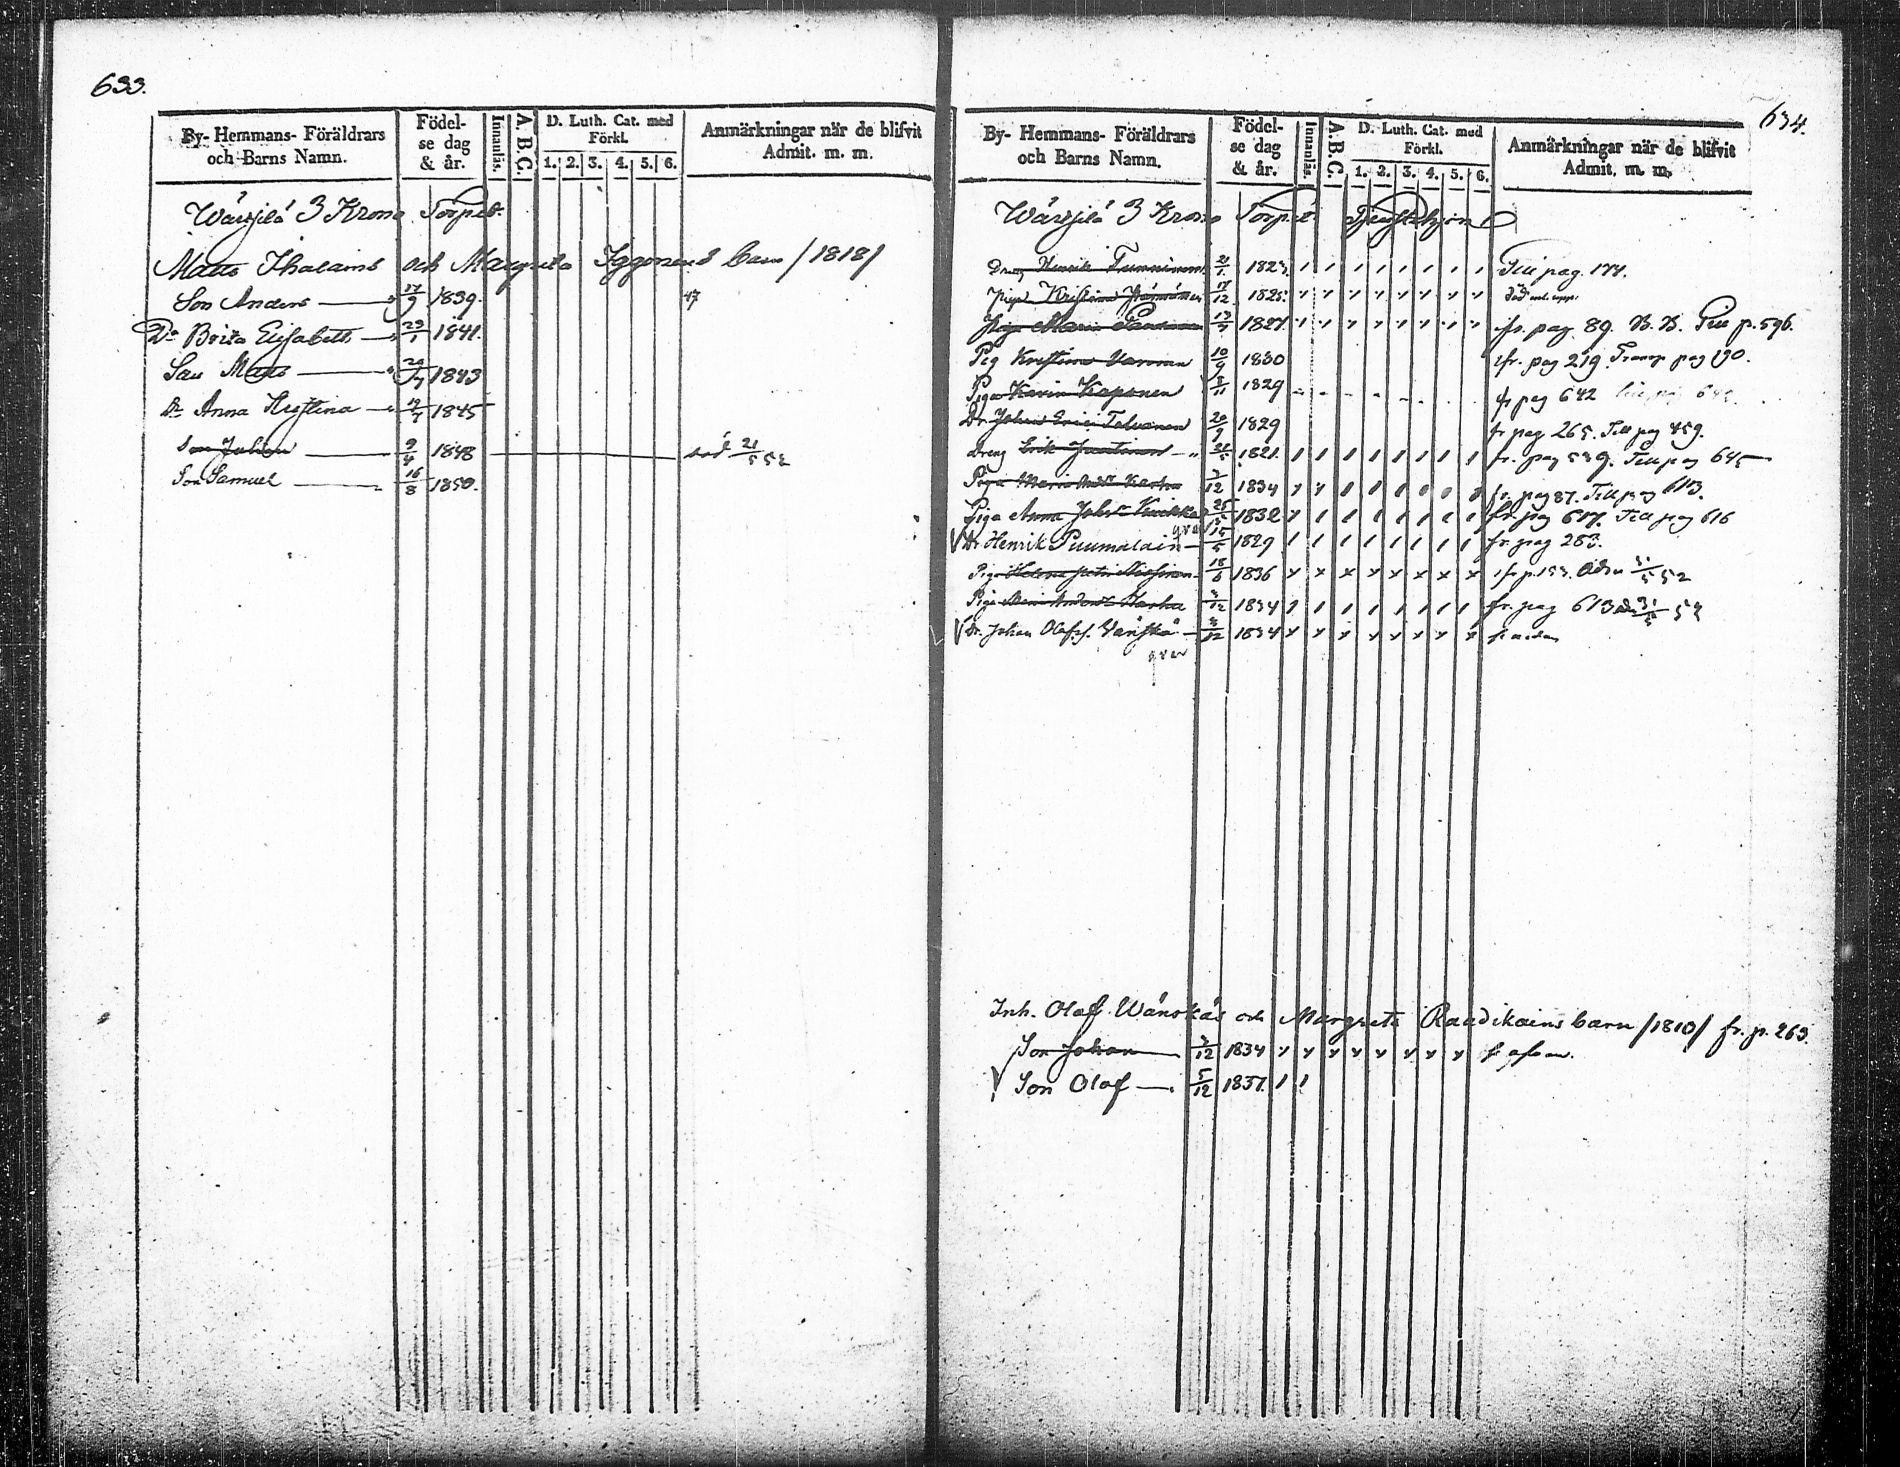 633.
By- Hemmans- Föräldrars och Barns Namn. Födelse dag & år. Innanläs. A. B. C. D. Luth. Cat. med Förkl. 1. 2. 3. 4. 5. 6. Anmärkningar när de blifvit Admit. m. m.
Wärsilä 3 Krono Torpet.
Matts Ihalains och Margreta Iggonens barn /1818/
Son Anders 17/9 1839. 47
Dr Brita Elisabeth 23/1 1841.
Son Matts 1843
Dr Anna Kristina 19/7 1845
Son Johan 9/4 1848 död 21/5 52
Son Samuel 16/8 1850.
634.
By- Hemmans- Föräldrars och Barns Namn. Födelse dag & år. Innanläs. A. B. C. D. Luth. Cat. med Förkl. 1. 2. 3. 4. 5. 6. Anmärkningar när de blifvit Admit. m. m.
Wärsilä 3 Krono Torpet Tjenstehjon
Dreng Henrik 21/1 1823. Till pag. 174.
Piga Kristina 17/12 1825.
Piga Maria 1827. fr. pag. 89. N. B. Till p. 596.
Pig Kristina 10/9 1830 fr. pag 219. Transp pag 190.
Piga Karin Kaponen 8/11 1829 fr pag 642
Dr Johan Eric Talvanen 20/9 1829 fr pag 265. Till pag 459.
Dreng Erik 1821. fr. pag 539. Till pag 645
Piga Maria Karhu 3/12 1834 fr. pag 87. Till pag 613.
Piga Anna Johsdr 25/5 1832 fr. pag 617. Till pag 616
Dr Henrik Puumalain qvar 15/5 1829 fr. pag 283.
Piga Helena 18/6 1836 fr p. 153. 31/5 52
Piga Maria Andersdr Karhu 3/12 1834 fr. pag 613 31/5 52
Dr. Johan Olofss. Vänskä 3/12 1834
qvar
Inh. Olof Wänskäs och Margreta Raudikains barn /1810/ fr. p. 263.
Son Johan 3/12 1834
Son Olof 5/12 1837.